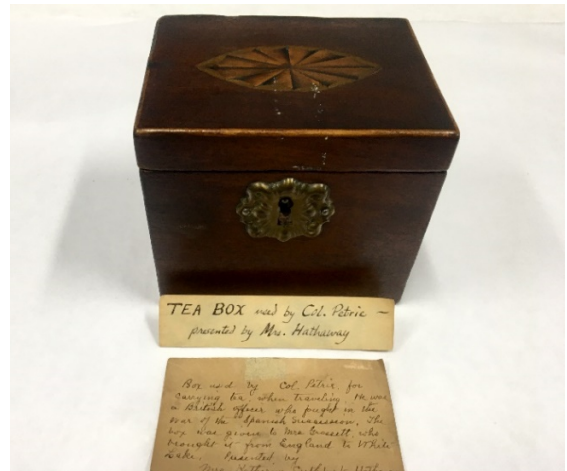 TEA BOX used by Col. Petrie —
presented by Mrs. Hathaway
Box used by Col. Petrie for
carrying tea when traveling. He was
a British officer who fought in the
War of the Spanish Succession. The
box was given to Mrs. who
brought it from England to White
Lake. Presented by
Mrs.